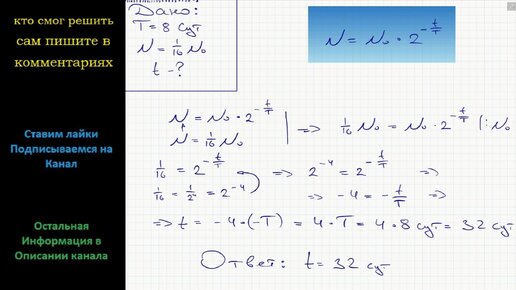 кто смог решить
сам пишите в
комментариях
Ставим лайки
Подписываемся на
Канал
Остальная
Информация в
Описании канала
Дано:
T = 8 сут
N = 1/16 N₀
t - ?
N = N₀ · 2^(-t/T)
N = N₀ · 2^(-t/T)
N = 1/16 N₀ | => 1/16 N₀ = N₀ · 2^(-t/T) |: N₀
1/16 = 2^(-t/T) => 2^(-4) = 2^(-t/T) =>
1/16 = 1/2⁴ = 2^(-4) => -4 = -t/T =>
=> t = -4·(-T) = 4·T = 4·8 сут = 32 сут
Ответ: t = 32 сут